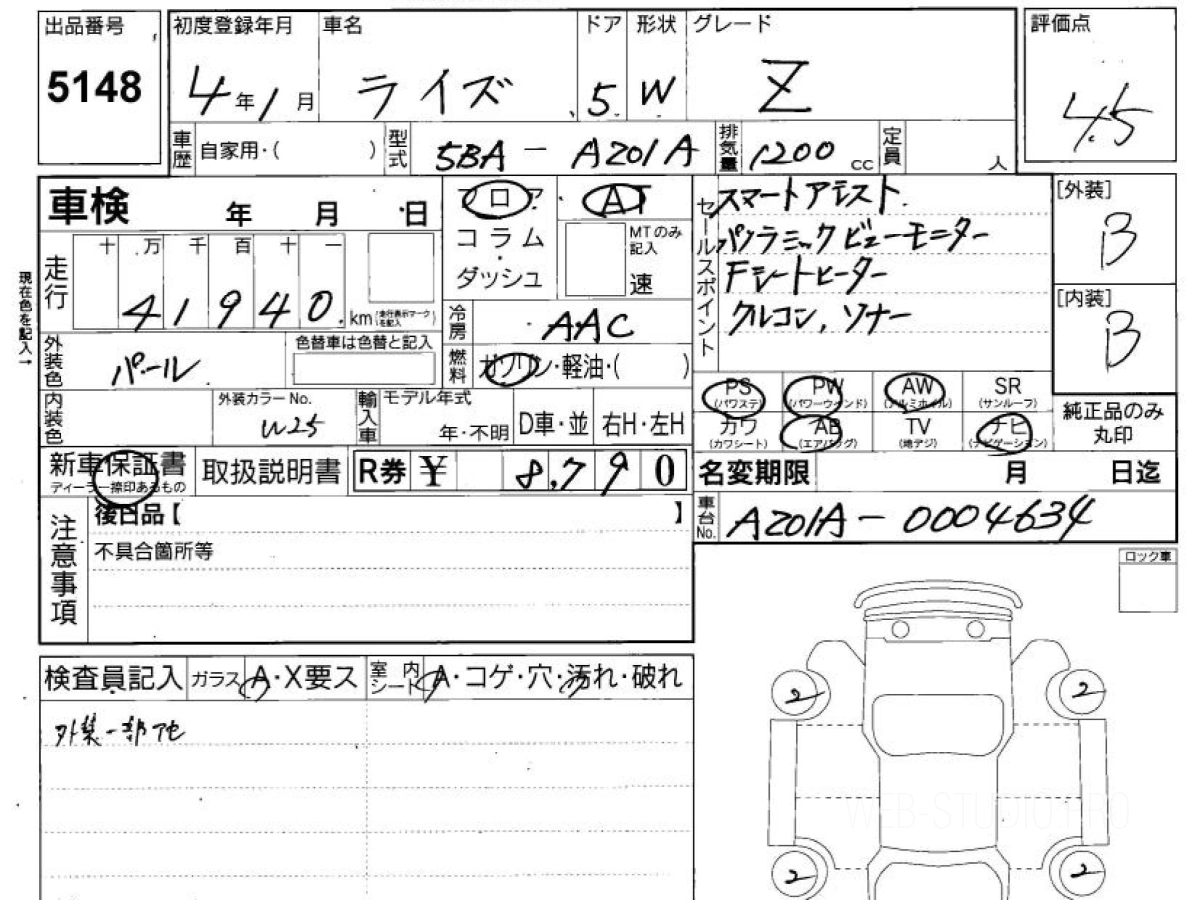 出品番号
5148
初度登録年月
4年1月
車名
ライズ
ドア
5
形状
W
グレード
Z
評価点
4.5
車歴
自家用・( )
型式
5BA - A201A
排気量
1200 cc
定員
人
車検 年 月 日
フロア
コラム
ダッシュ
AT
MTのみ記入
速
セールスポイント
スマートアシスト
パノラミックビューモニター
Fシートヒーター
クルコン, ソナー
[外装]
B
[内装]
B
現在色を記入→
走行
十 万 千 百 十 一
41940
km (走行表示マークを記入)
冷房
AAC
燃料
ガソリン・軽油・( )
外装色
パール
色替車は色替と記入
内装色
外装カラー No.
W25
輸入車
モデル年式
年・不明
D車・並
右H・左H
PS (パワステ)
PW (パワーウインド)
AW (アルミホイル)
SR (サンルーフ)
カワ (カワシート)
AB (エアバッグ)
TV (地デジ)
ナビ (ナビゲーション)
純正品のみ
丸印
新車保証書
ディーラー捺印あるもの
取扱説明書
R券 ¥ 8,790
名変期限 月 日迄
車台No.
A201A - 0004634
注意事項
後日品【 】
不具合箇所等
ロック車
検査員記入
ガラス A・X要ス
室内シート A・コゲ・穴・汚れ・破れ
外装一部
2
2
2
2
WEB-STUDIO.PRO